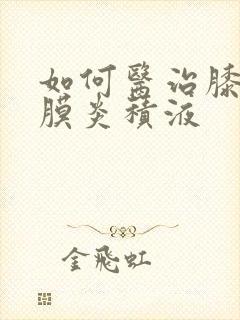 如何醫治膝
膜炎積液
金飛虹